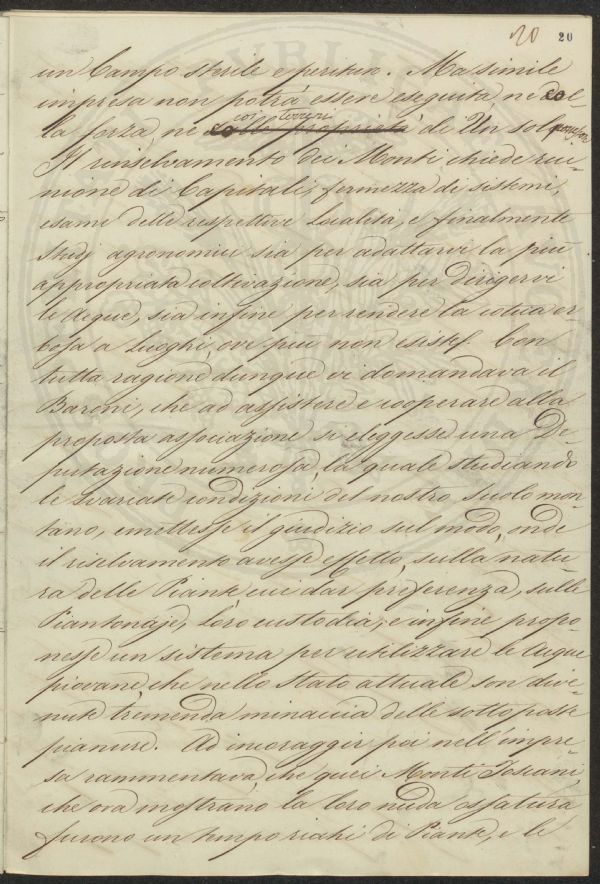 20 20
un Campo sterile e perituro. Ma simile
impresa non potrà essere eseguita nè col-
la forza, nè colle proprietà di Un sol
con terreni
Il rinselvamento dei Monti chiede riu-
nione di Capitali, fermezza di sistemi,
esame delle respettive Località, e finalmente
studj agronomici sia per adattarvi la più
appropriata coltivazione, sia per dirigervi
le Acque, sia infine per rendere la cotica er-
bosa a Luoghi, ove più non esiste. Con
tutta ragione dunque vi domandava il
Baroni, che ad assistere e cooperare alla
proposta associazione si eleggesse una De-
putazione numerosa, la quale studiando
le svariate condizioni del nostro suolo mon-
tano, emettesse il giudizio sul modo, onde
il riselvamento avesse effetto, sulla natu-
ra delle Piante, cui dar preferenza, sulle
Piantonaje, loro custodia, e infine propo-
nesse un sistema per utilizzare le Acque
piovane, che nello Stato attuale son dive-
nute tremenda minaccia delle sottoposte
pianure. Ad incoraggir poi nell'impre-
sa rammentava, che quei Monti Toscani,
che ora mostrano la loro nuda ossatura
furono un tempo ricchi di Piante, e le